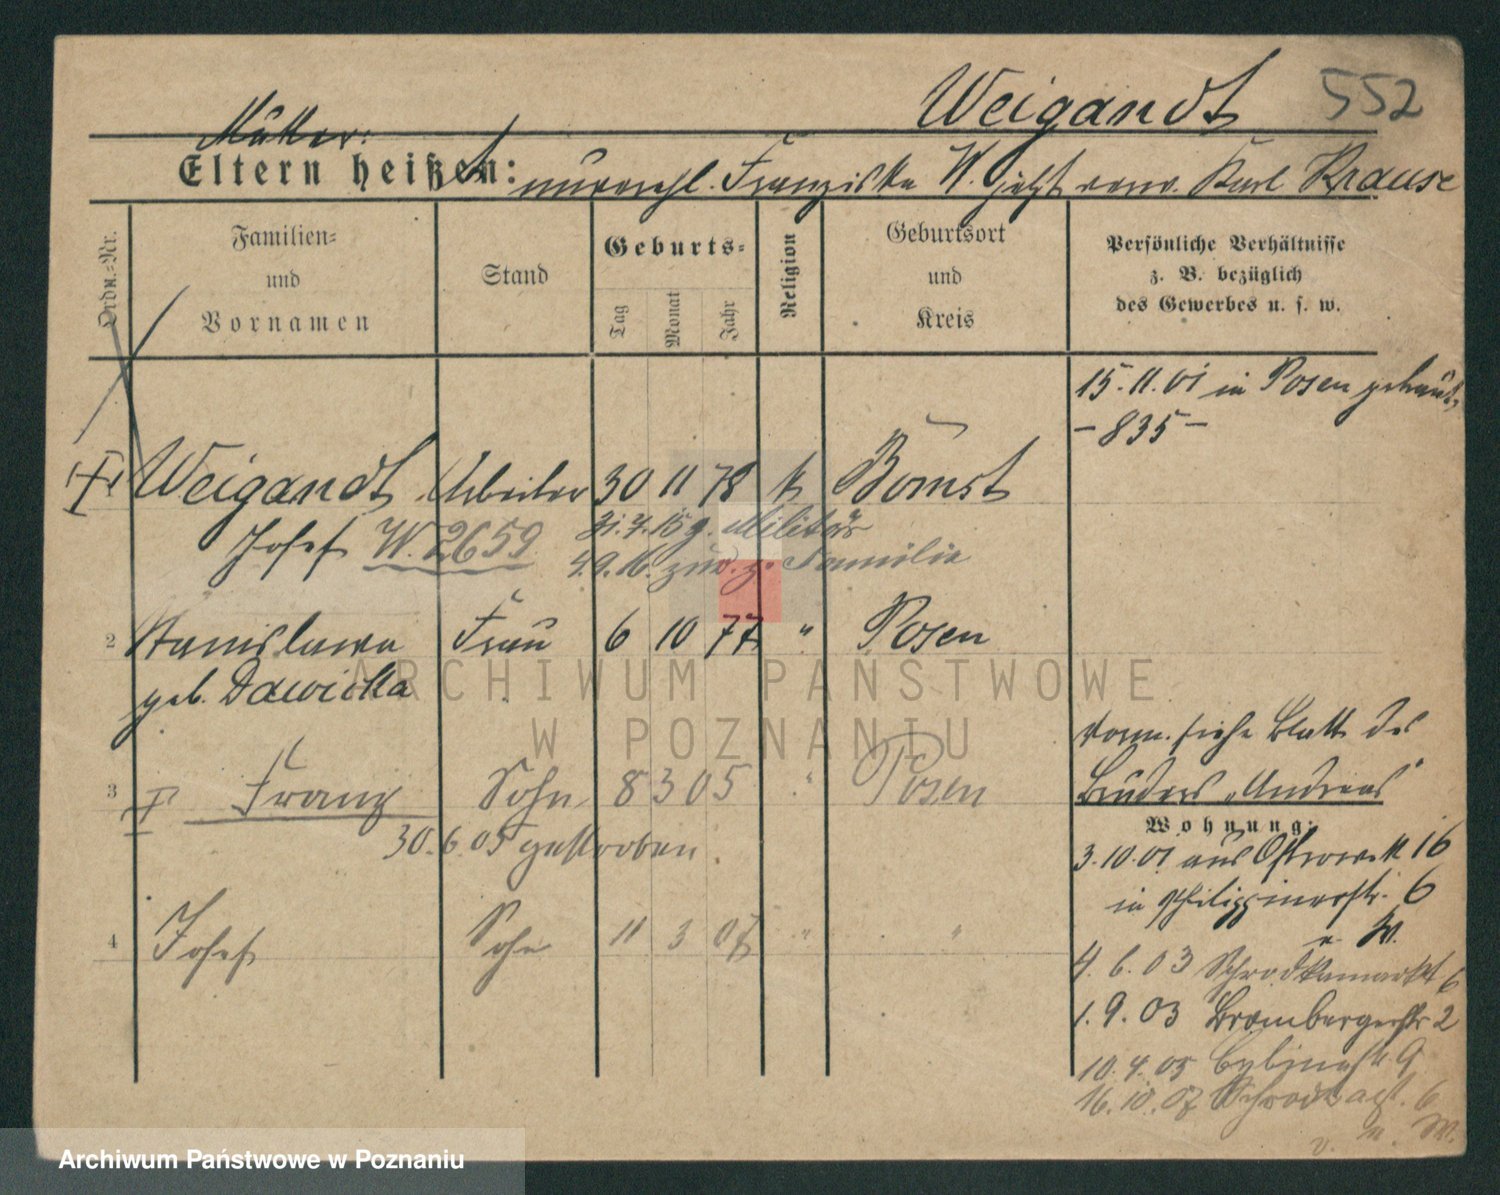 Weigandt 552
Mutter:
Eltern heißen: unverehl. Franziska W. jetzt verw. Karl Krause
Ordn.-Nr.
Familien-
und
Vornamen
Stand
Geburts-
Tag
Monat
Jahr
Religion
Geburtsort
und
Kreis
Persönliche Verhältnisse
z. B. bezüglich
des Gewerbes u. s. w.
15.11.01 in Posen getraut,
-835-
Weigandt Arbeiter 30 11 78 k Bomst
Josef W. 2659
31.7.15 z. Militär
4.9.16. zur. z. Familie
2 Stanislawa Frau 6 10 77 " Posen
geb. Dawicka
3 Franz Sohn 8 3 05 " Posen
30.6.05 gestorben.
4 Josef Sohn 11 3 07 " "
Vorm. siehe Blatt des
Bruders „Andreas"
Wohnung:
3.10.01 aus Ostrowek 16
in Philippinerstr. 6
v. W.
4.6.03 Schrodkamarkt 6
1.9.03 Brombergerstr 2
10.4.05 Cybinastr. 9
16.10.07 6
v. n. W.
ARCHIWUM PAŃSTWOWE
W POZNANIU
Archiwum Państwowe w Poznaniu